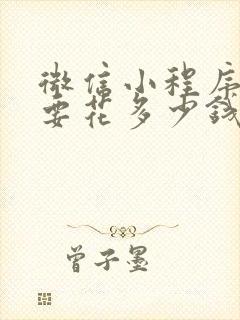 微信小程序
要花多少钱
曾子墨